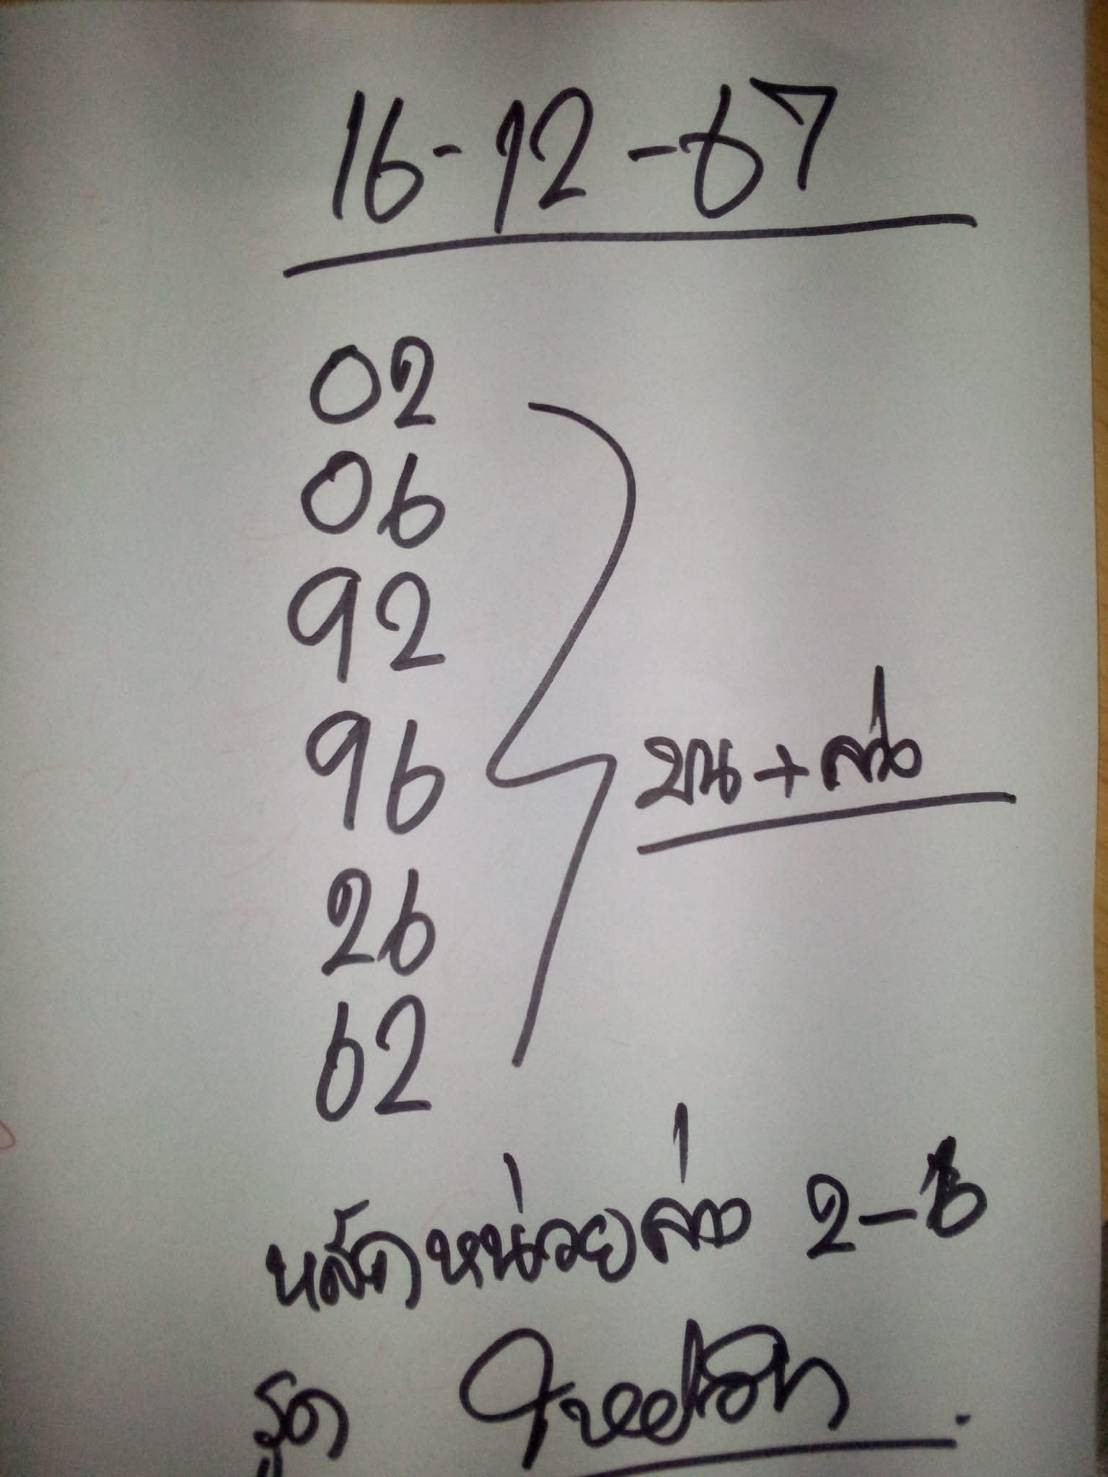 16-12-67
02
06
92
96
26
62
บน+ล่าง
หลักหน่วยล่าง 2-6
รูด